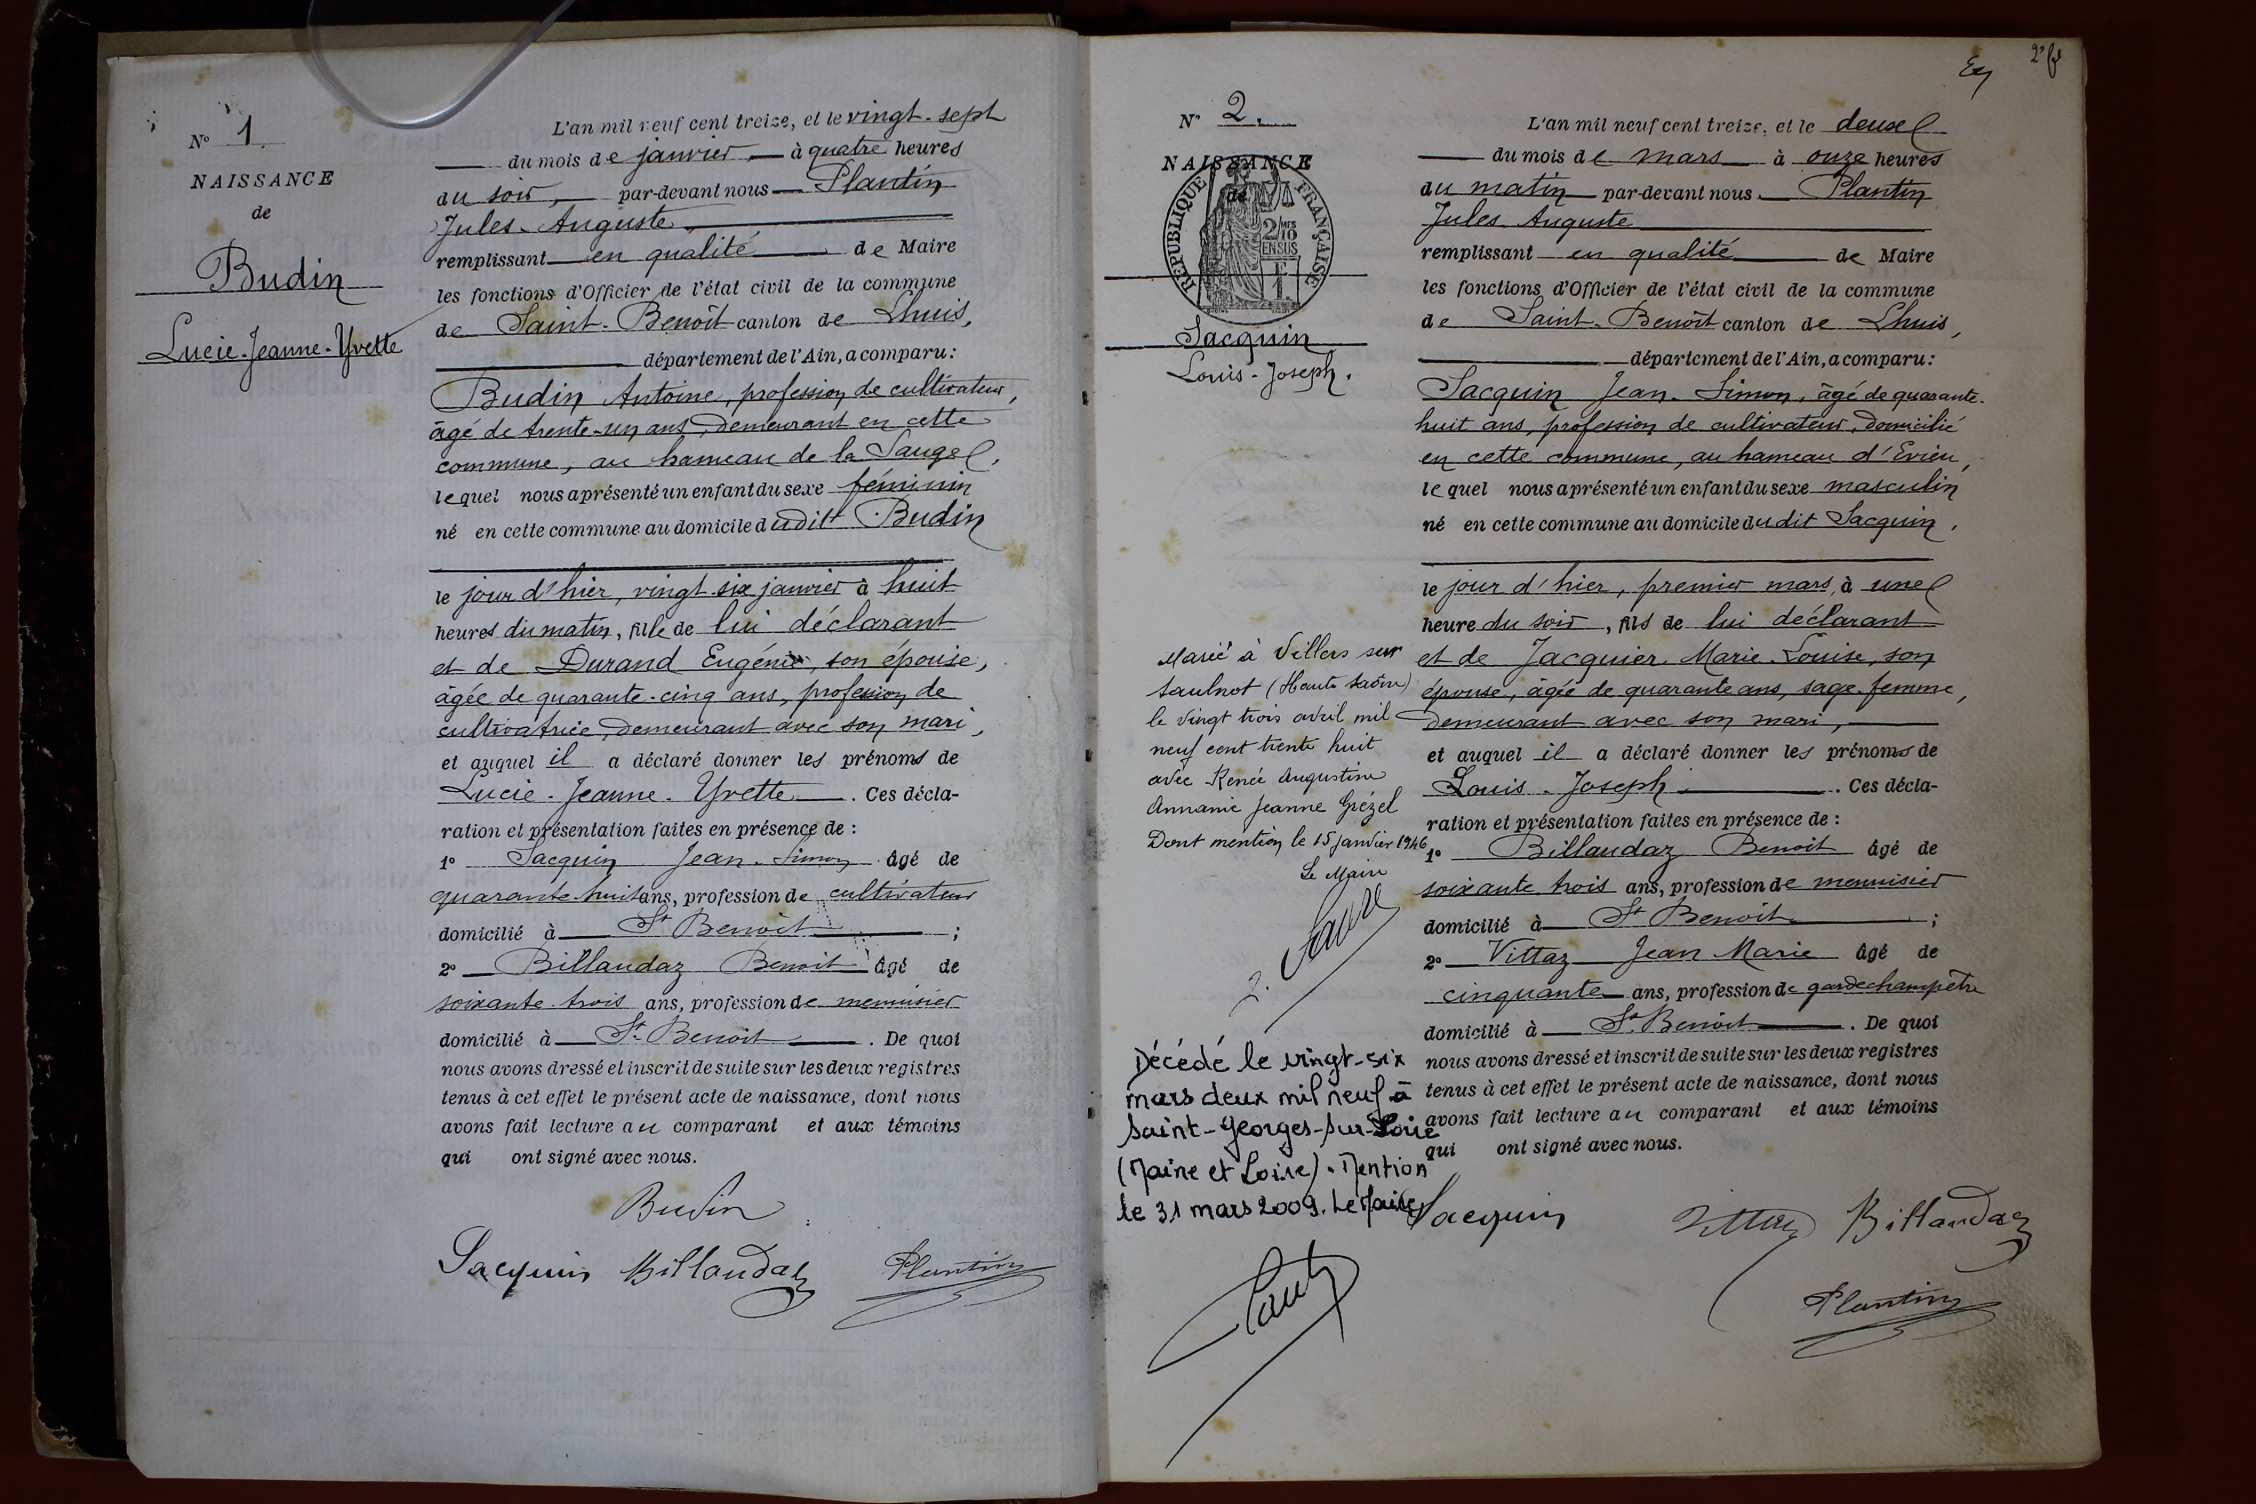 N° 1.
NAISSANCE
de
Budin
Lucie-Jeanne-Yvette
L'an mil neuf cent treize, et le vingt-sept
du mois de janvier à quatre heures
du soir, par-devant nous Plantin
Jules-Auguste,
remplissant en qualité de Maire
les fonctions d'Officier de l'état civil de la commune
de Saint-Benoît canton de Lhuis,
département de l'Ain, a comparu :
Budin Antoine, profession de cultivateur,
âgé de trente-un ans, demeurant en cette
commune, au hameau de la Sauge,
lequel nous a présenté un enfant du sexe féminin
né en cette commune au domicile dudit Budin
le jour d'hier, vingt-six janvier à huit
heures du matin, fille de lui déclarant
et de Durand Eugénie, son épouse,
âgée de quarante-cinq ans, profession de
cultivatrice, demeurant avec son mari,
et auquel il a déclaré donner les prénoms de
Lucie-Jeanne-Yvette. Ces décla-
ration et présentation faites en présence de :
1° Sacquin Jean-Simon âgé de
quarante-huit ans, profession de cultivateur
domicilié à St Benoit ;
2° Billaudaz Benoit âgé de
soixante-trois ans, profession de menuisier
domicilié à St-Benoit. De quoi
nous avons dressé et inscrit de suite sur les deux registres
tenus à cet effet le présent acte de naissance, dont nous
avons fait lecture au comparant et aux témoins
qui ont signé avec nous.
Budin
Sacquin Billaudaz Plantin
2e f
N° 2.
NAISSANCE
de
RÉPUBLIQUE FRANÇAISE
2/10 EN SUS
Sacquin
Louis-Joseph.
L'an mil neuf cent treize, et le deux
du mois de mars à onze heures
du matin par-devant nous Plantin
Jules-Auguste
remplissant en qualité de Maire
les fonctions d'Officier de l'état civil de la commune
de Saint-Benoît canton de Lhuis,
département de l'Ain, a comparu :
Sacquin Jean-Simon, âgé de quarante-
huit ans, profession de cultivateur, domicilié
en cette commune, au hameau d'Evieu,
lequel nous a présenté un enfant du sexe masculin
né en cette commune au domicile dudit Sacquin,
le jour d'hier, premier mars, à une
heure du soir, fils de lui déclarant
et de Jacquier Marie-Louise, son
épouse, âgée de quarante ans, sage-femme,
demeurant avec son mari,
et auquel il a déclaré donner les prénoms de
Louis-Joseph. Ces décla-
ration et présentation faites en présence de :
1° Billaudaz Benoit âgé de
soixante trois ans, profession de menuisier
domicilié à St Benoit ;
2° Vittaz Jean Marie âgé de
cinquante ans, profession de garde champêtre
domicilié à St. Benoit. De quoi
nous avons dressé et inscrit de suite sur les deux registres
tenus à cet effet le présent acte de naissance, dont nous
avons fait lecture au comparant et aux témoins
qui ont signé avec nous.
Marié à Villers sur
Saulnot (Haute Saône)
le vingt trois avril mil
neuf cent trente huit
avec Renée Augustine
Annanie Jeanne Grézel
Dont mention le 15 janvier 1946
Le Maire
Décédé le vingt-six
mars deux mil neuf à
Saint-Georges-sur-Loire
(Maine et Loire). Mention
le 31 mars 2009. Le Maire
Sacquin Vittaz Billaudaz
Plantin